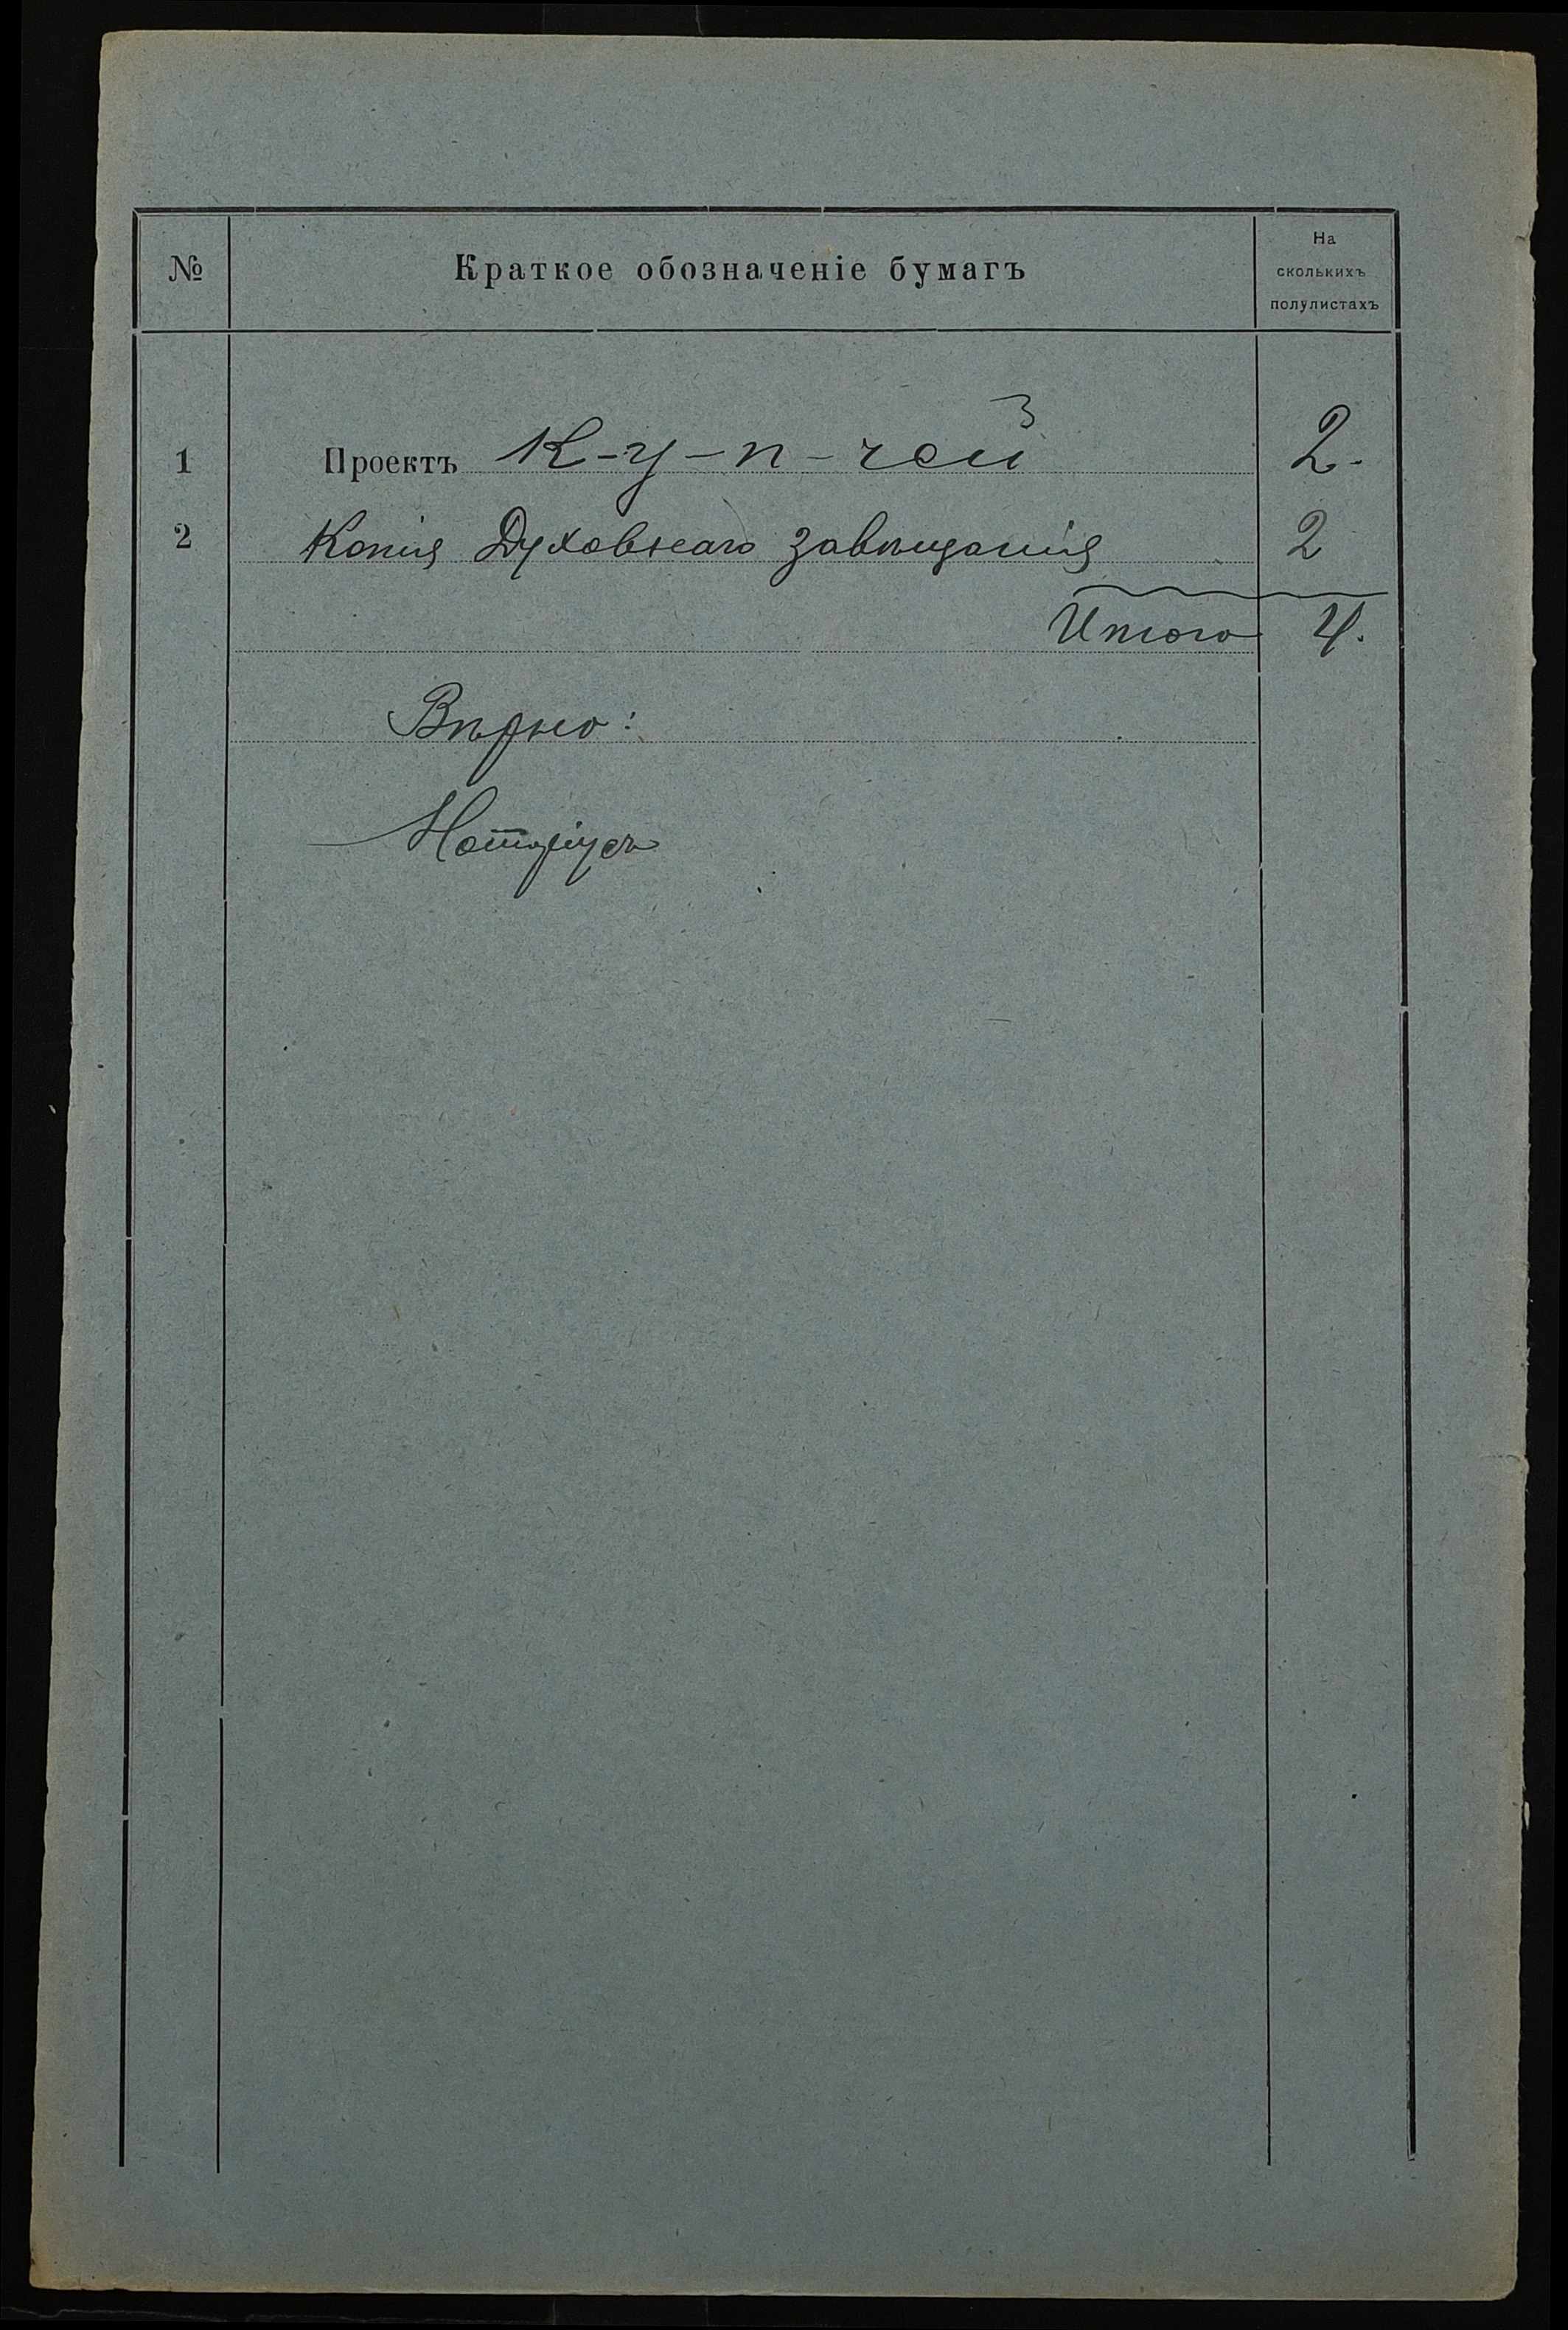 № Краткое обозначеніе бумагъ На сколькихъ полулистахъ
1 Проектъ К-у-п-чей 2.
2 Копія Духовнаго завѣщанія 2
Итого 4.
Вѣрно:
Нотаріусъ